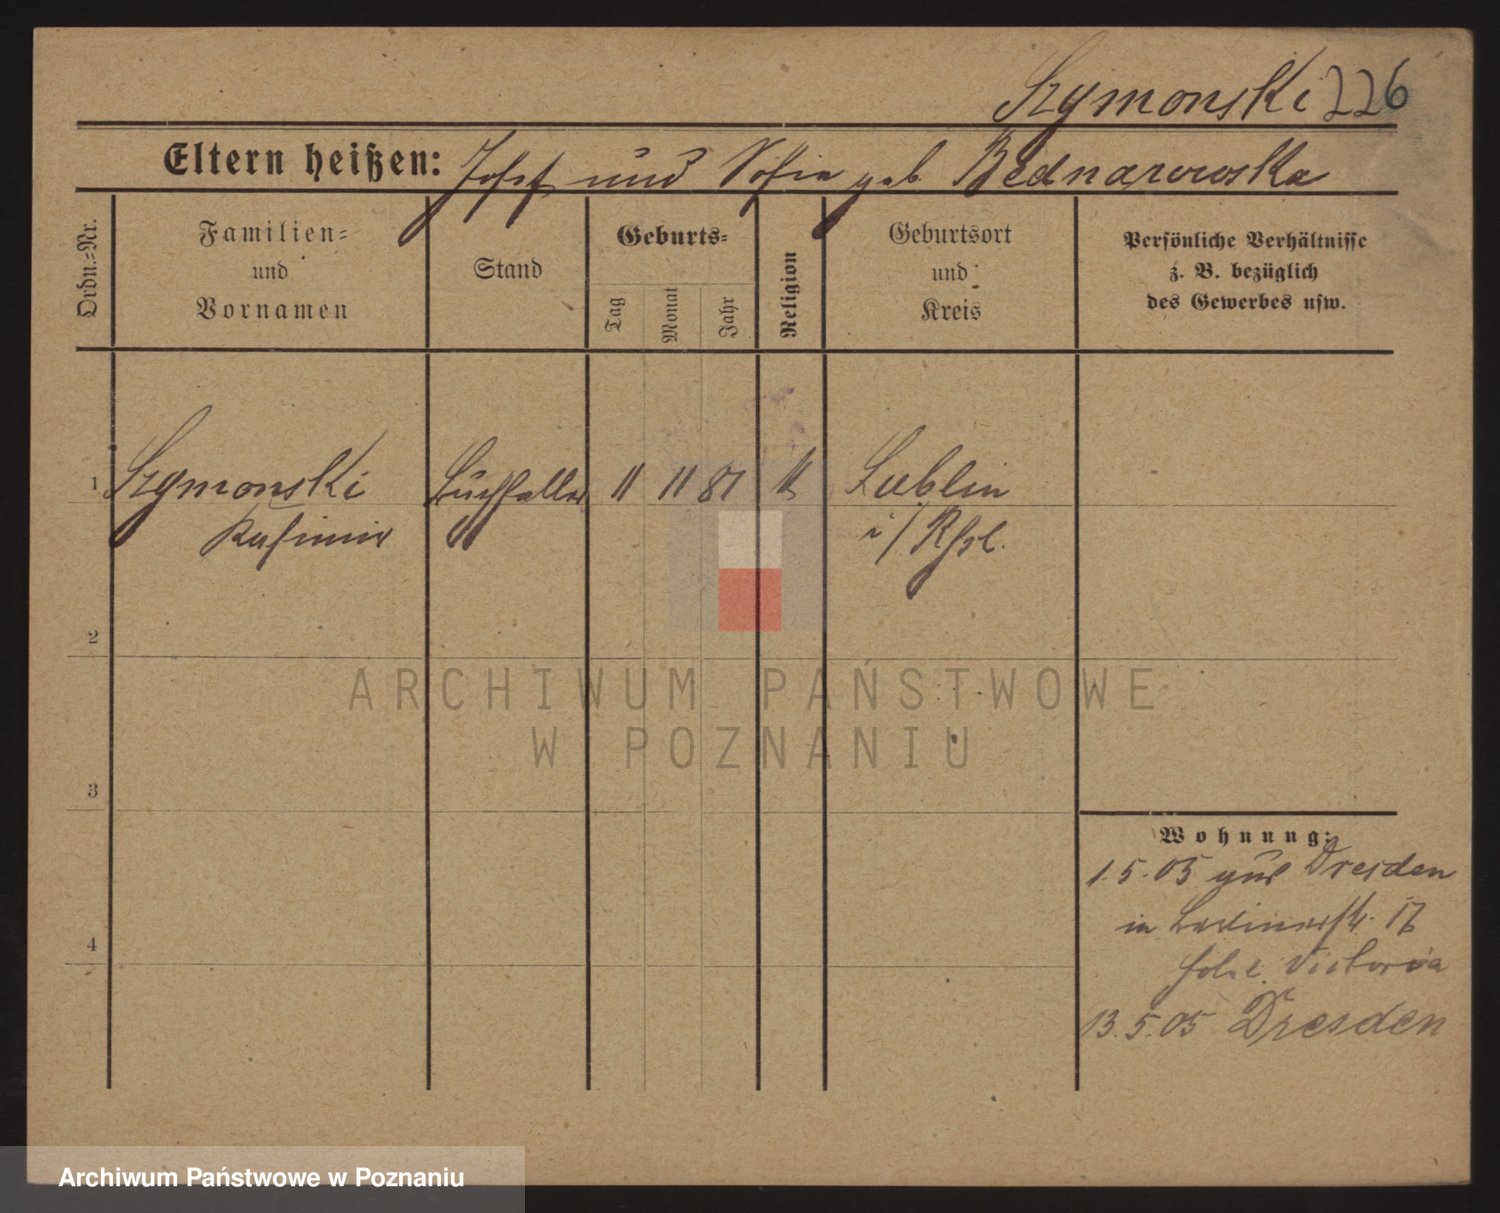 Szymonski 226
Eltern heißen: Josef und Sofia geb. Bednarowska
Ordn.=Nr.
Familien=
und
Vornamen
Stand
Geburts=
Tag
Monat
Jahr
Religion
Geburtsort
und
Kreis
Persönliche Verhältnisse
z. B. bezüglich
des Gewerbes usw.
1 Szymonski Buchhalter 11 11 81 k Lublin
Kasimir i/Rßl.
2
3
4
Wohnung:
1.5.05 aus Dresden
in Berlinerstr. 17
Hotel Victoria
13.5.05 Dresden
ARCHIWUM PAŃSTWOWE
W POZNANIU
Archiwum Państwowe w Poznaniu